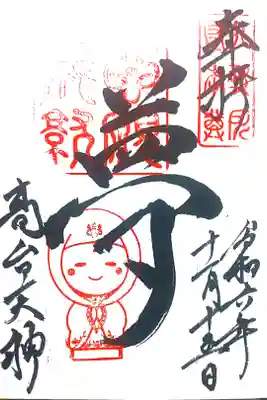 奉拝
夢
高台天神
令和六年
十一月十五日